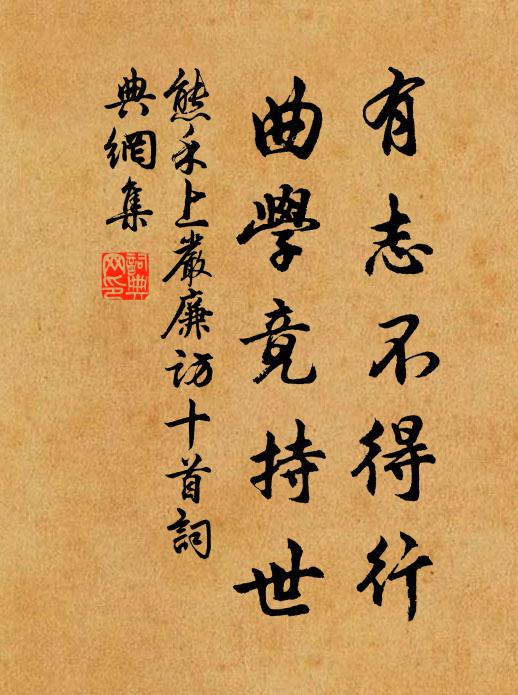 有志不得行
曲學竟持世
熊禾上嚴廉訪十首詞
典網集
詞典
网印